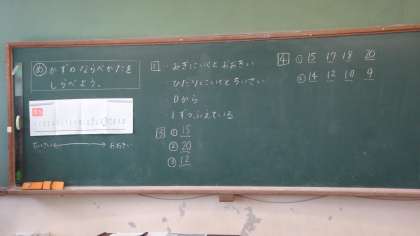 め かずのならべかたを
しらべよう。
ちいさい おおきい
1 みぎにいくとおおきい
ひだりにいくとちいさい
0から
1ずつふえている
3 ① 15
② 20
③ 12
4 ① 15 17 18 20
② 14 12 10 9